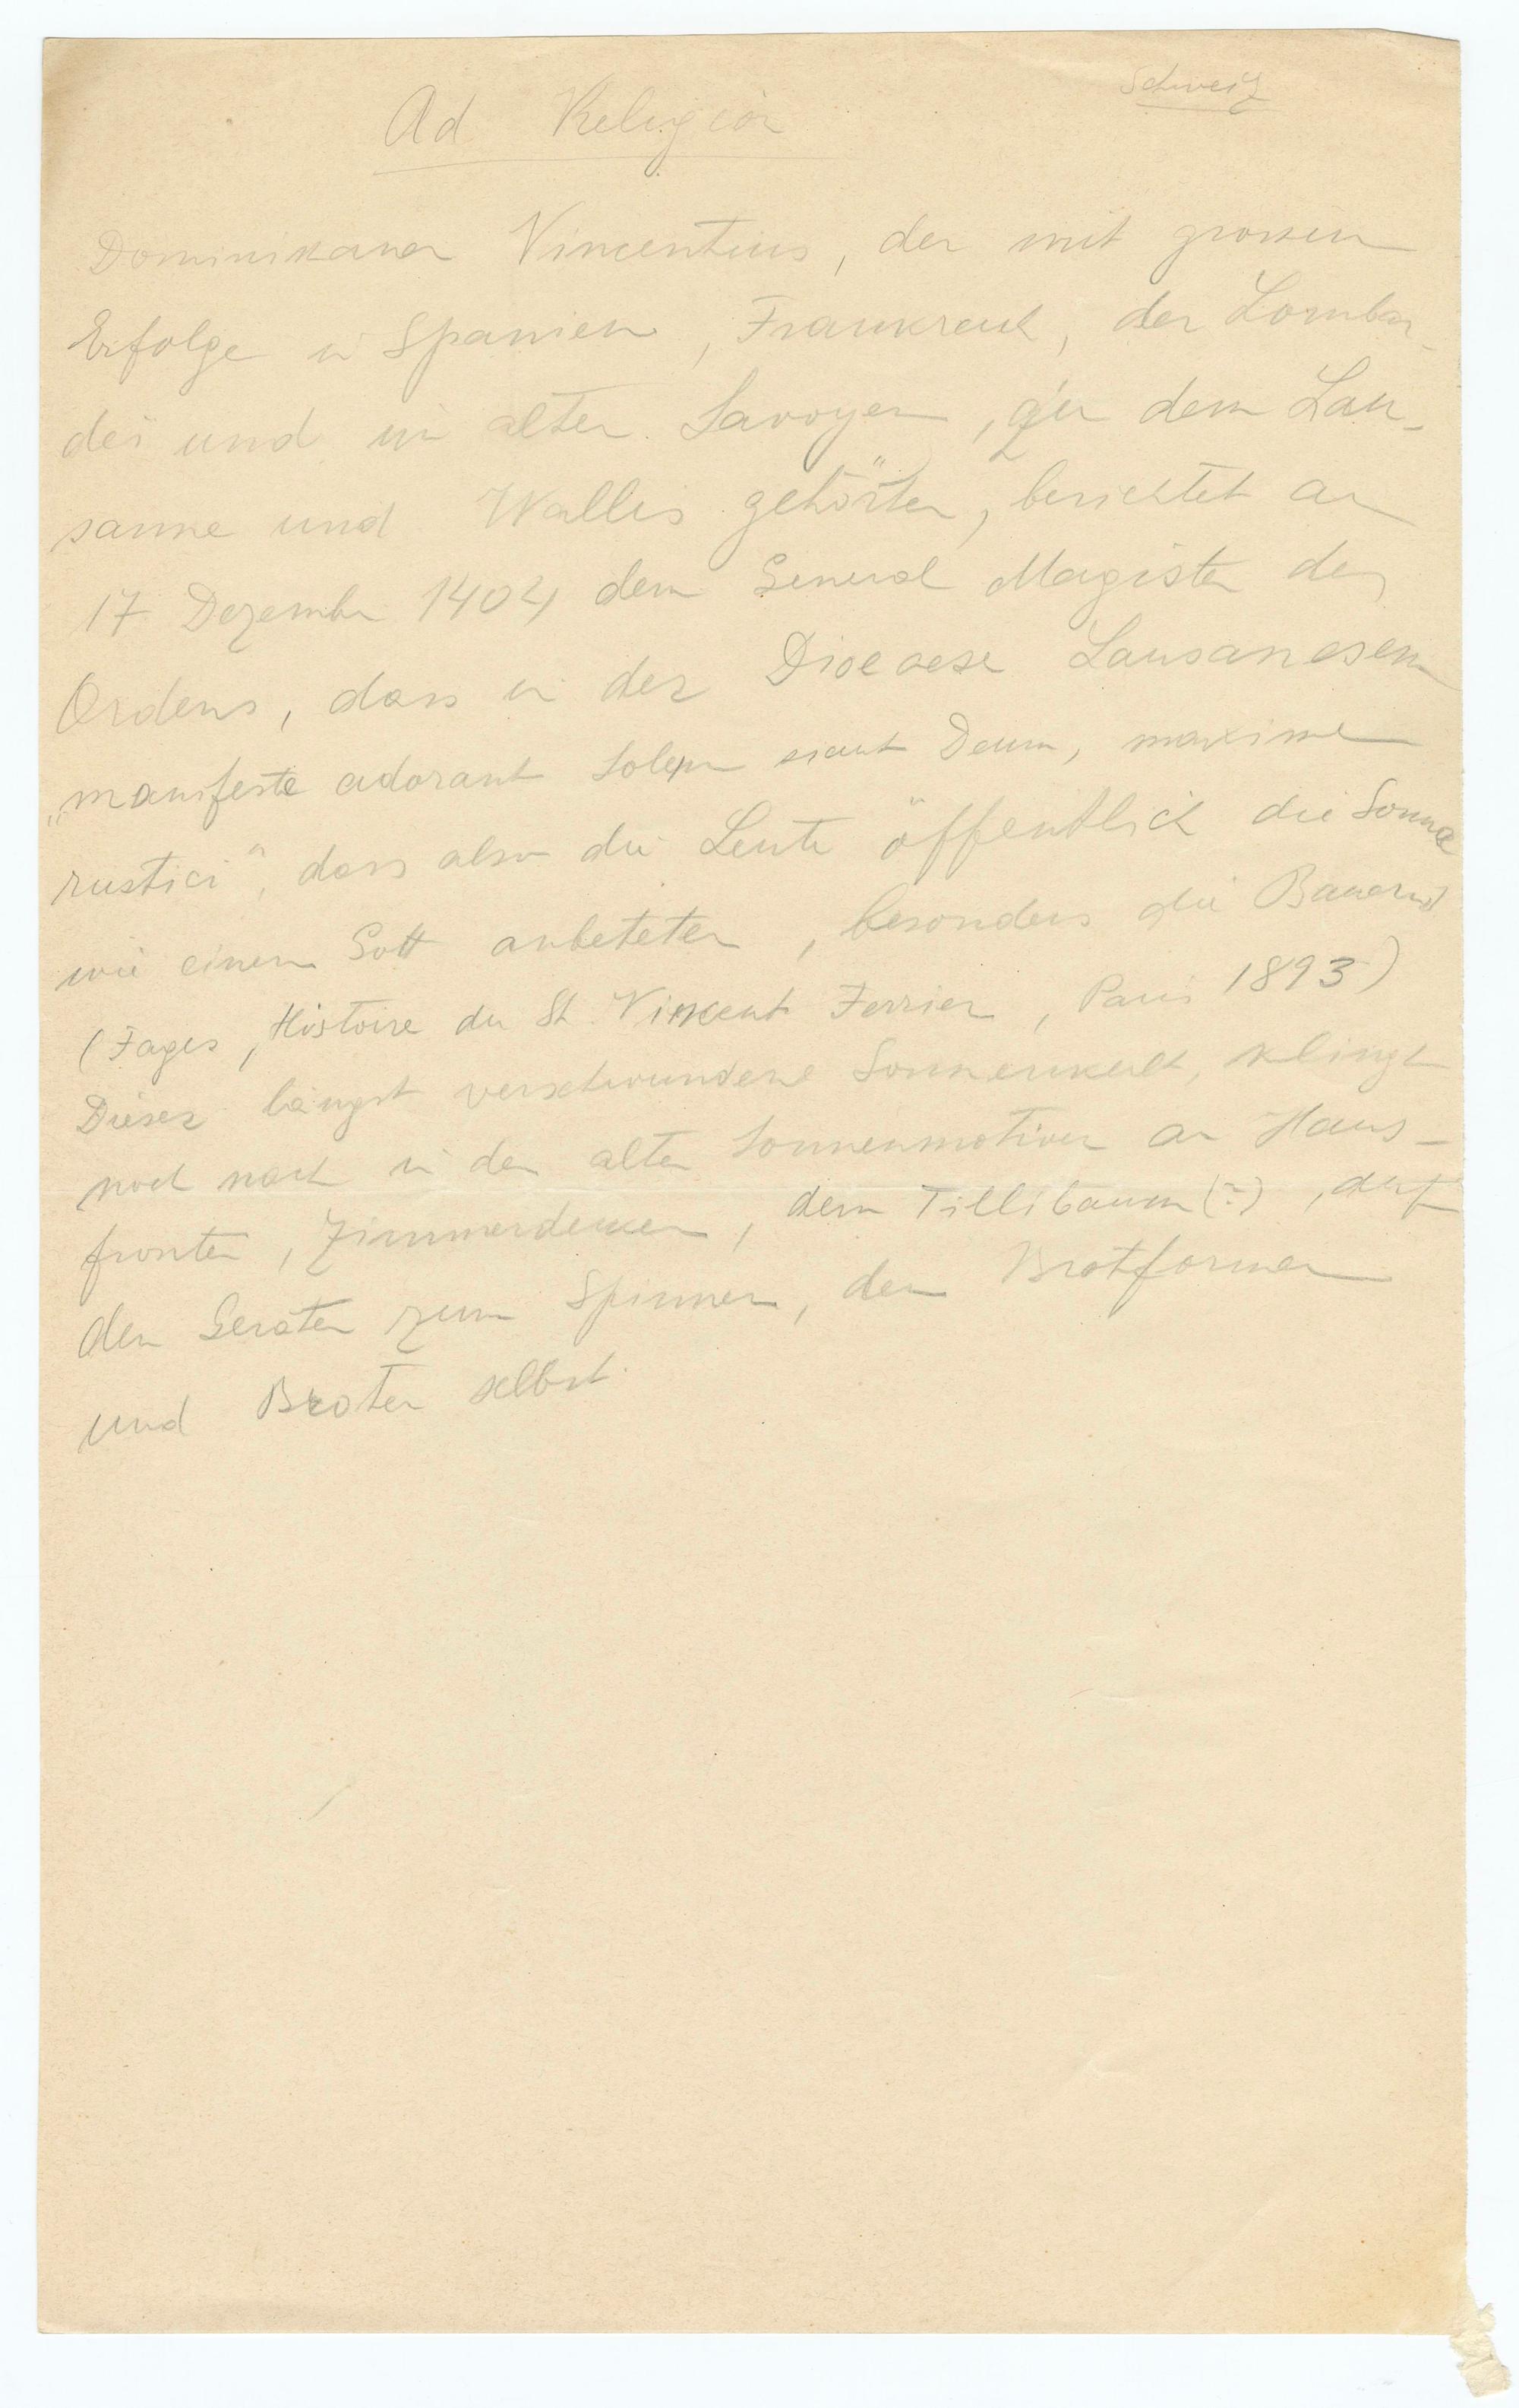 Schweiz
Ad Religion
Dominikaner Vincentius, der mit grossem
Erfolge in Spanien, Frankreich, der Lombar-
dei und im alten Savoyen, zu dem Lau-
sanne und Wallis gehörten, berichtet am
17 Dezember 1404 dem General Magister des
Ordens, dass in der Dioecese Lausanesem
„manifeste adorant Solem sicut Deum, maxime
rustici", dass also die Leute öffentlich die Sonne
wie einen Gott anbeteten, besonders die Bauern
(Fages, Histoire du St. Vincent Ferrier, Paris 1893)
Dieser längst verschwundene Sonnenkult, klingt
noch nach in den alten Sonnenmotiven an Haus-
fronten, Zimmerdecken, dem Tillibaum (?), auf
den Geräten zum Spinnen, den Brotformen
und Broten selbst.